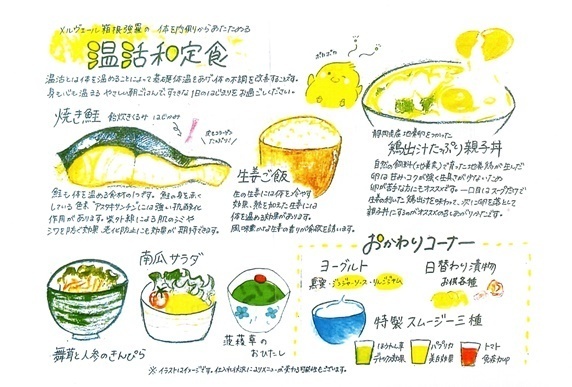 メルヴェール箱根強羅の 体を内側からあたためる
温活和定食
温活とは体を温めることによって基礎体温をあげ、体の不調を改善することです。
身も心も温まる やさしい朝ごはんで、すてきな1日のはじまりをお過ごしください。
焼き鮭
鮭も体を温める食材の1つです。鮭の身を赤く
している色素"アスタキサンチン"には強い抗酸化
作用があります。紫外線による肌のシミや
シワを防ぐ効果、老化防止にも効果が期待できます。
生姜ご飯
生の生姜には体を冷やす
効果、熱を加えた生姜には
体を温める効果があります。
風味豊かな生姜の香りが食欲を誘います。
ぽかぽか
静岡県産地養卵をつかった
鶏出汁たっぷり親子丼
自然の飼料(地養素)で育った地養鶏が生んだ
卵は甘み・コクが強く生臭さが少ないため
卵が苦手な方にもオススメです。一口目はスープだけで
生姜の効いた鶏出汁を味わって、次に卵を落として
親子丼にするのがオススメの召しあがりかたです。
舞茸と人参のきんぴら
南瓜サラダ
菠薐草の
おひたし
おかわりコーナー
ヨーグルト
黒蜜・ジンジャーソース・りんごジャム
日替わり漬物
お供各種
特製スムージー三種
ほうれん草
デトックス効果
パプリカ
美白効果
トマト
免疫力UP
※イラストはイメージです。仕入れ状況によりメニューが変わる可能性もございます。